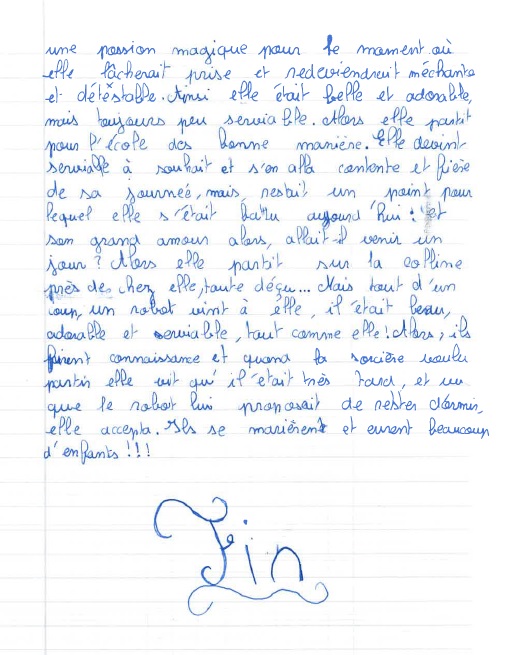 une possion magique pour le moment où
elle lâcherait prise et redeviendrait méchante
et détéstable. Ainsi elle était belle et adorable,
mais toujours peu serviable. Alors elle partit
pour l'école des bonne manière. Elle devint
serviable à souhait et s'en alla contente et fière
de sa journeé, mais restait un point pour
lequel elle s'était battu aujourd'hui : et
son grand amour alors, allait-il venir un
jour ? Alors elle partit sur la colline
près de chez elle, toute déçu... Mais tout d'un
coup, un robot vint à elle, il était beau,
adorable et serviable, tout comme elle ! Alors, ils
firent connaissance et quand la sorcière voulu
partir elle vit qu'il était très tard, et vu
que le robot lui proposait de rester dormir,
elle accepta. Ils se marièrent et eurent beaucoup
d'enfants !!!
Fin